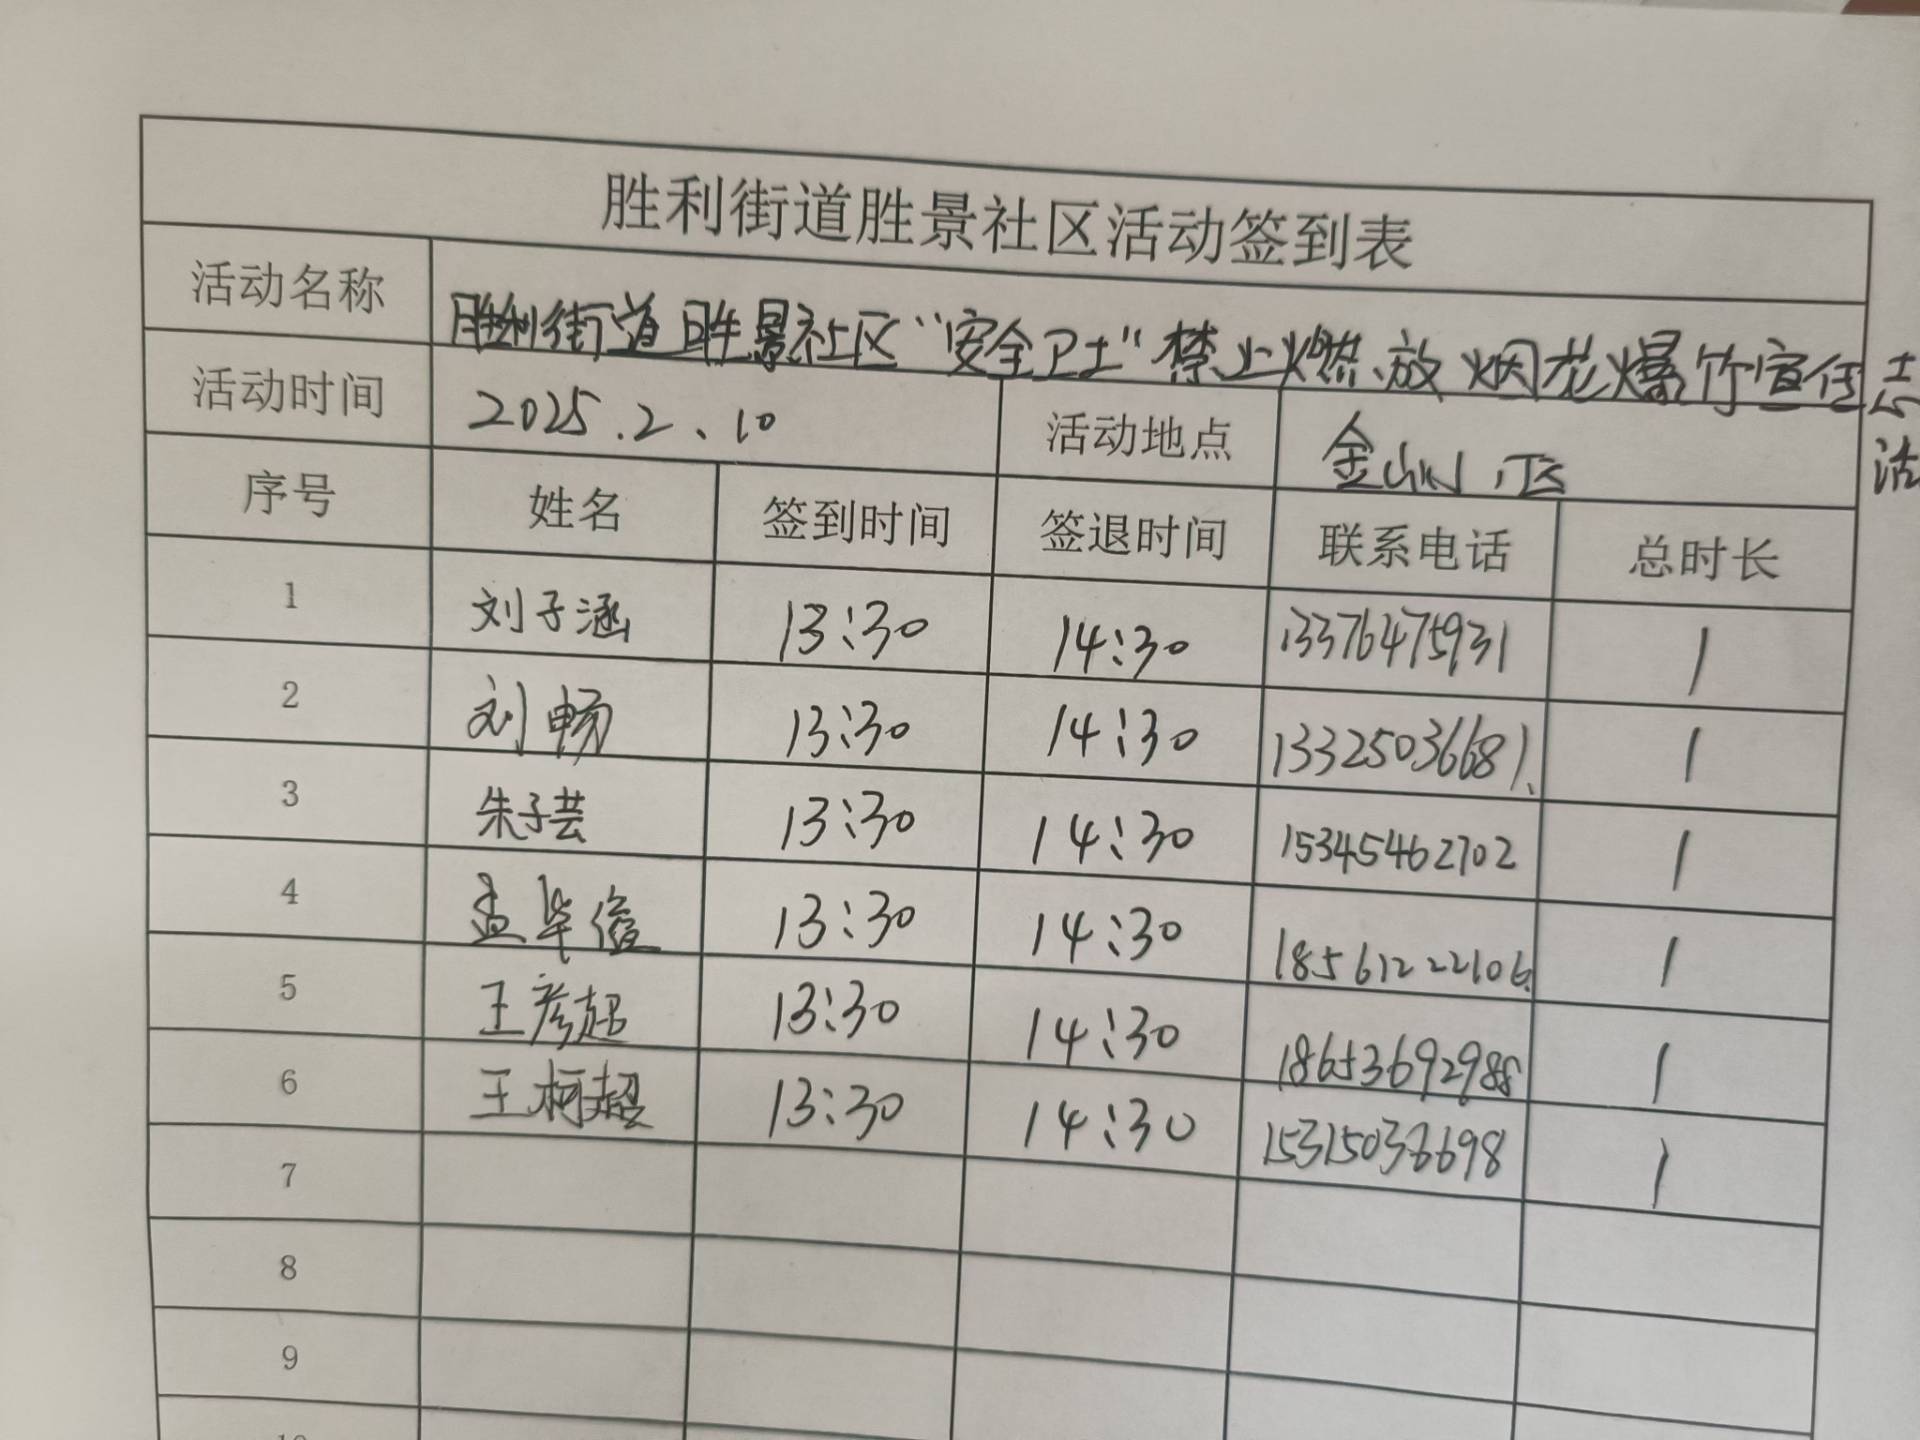 胜利街道胜景社区活动签到表
活动名称 胜利街道胜景社区“安全卫士”禁止燃放烟花爆竹宣传志
活动时间 2025.2.10 活动地点 金山小区 活
序号 姓名 签到时间 签退时间 联系电话 总时长
1 刘子涵 13:30 14:30 13376475931 1
2 刘畅 13:30 14:30 13325036681 1
3 朱子芸 13:30 14:30 15345462702 1
4 孟毕俊 13:30 14:30 18561222106 1
5 王彦超 13:30 14:30 18653692988 1
6 王柯超 13:30 14:30 1
7
8
9
10